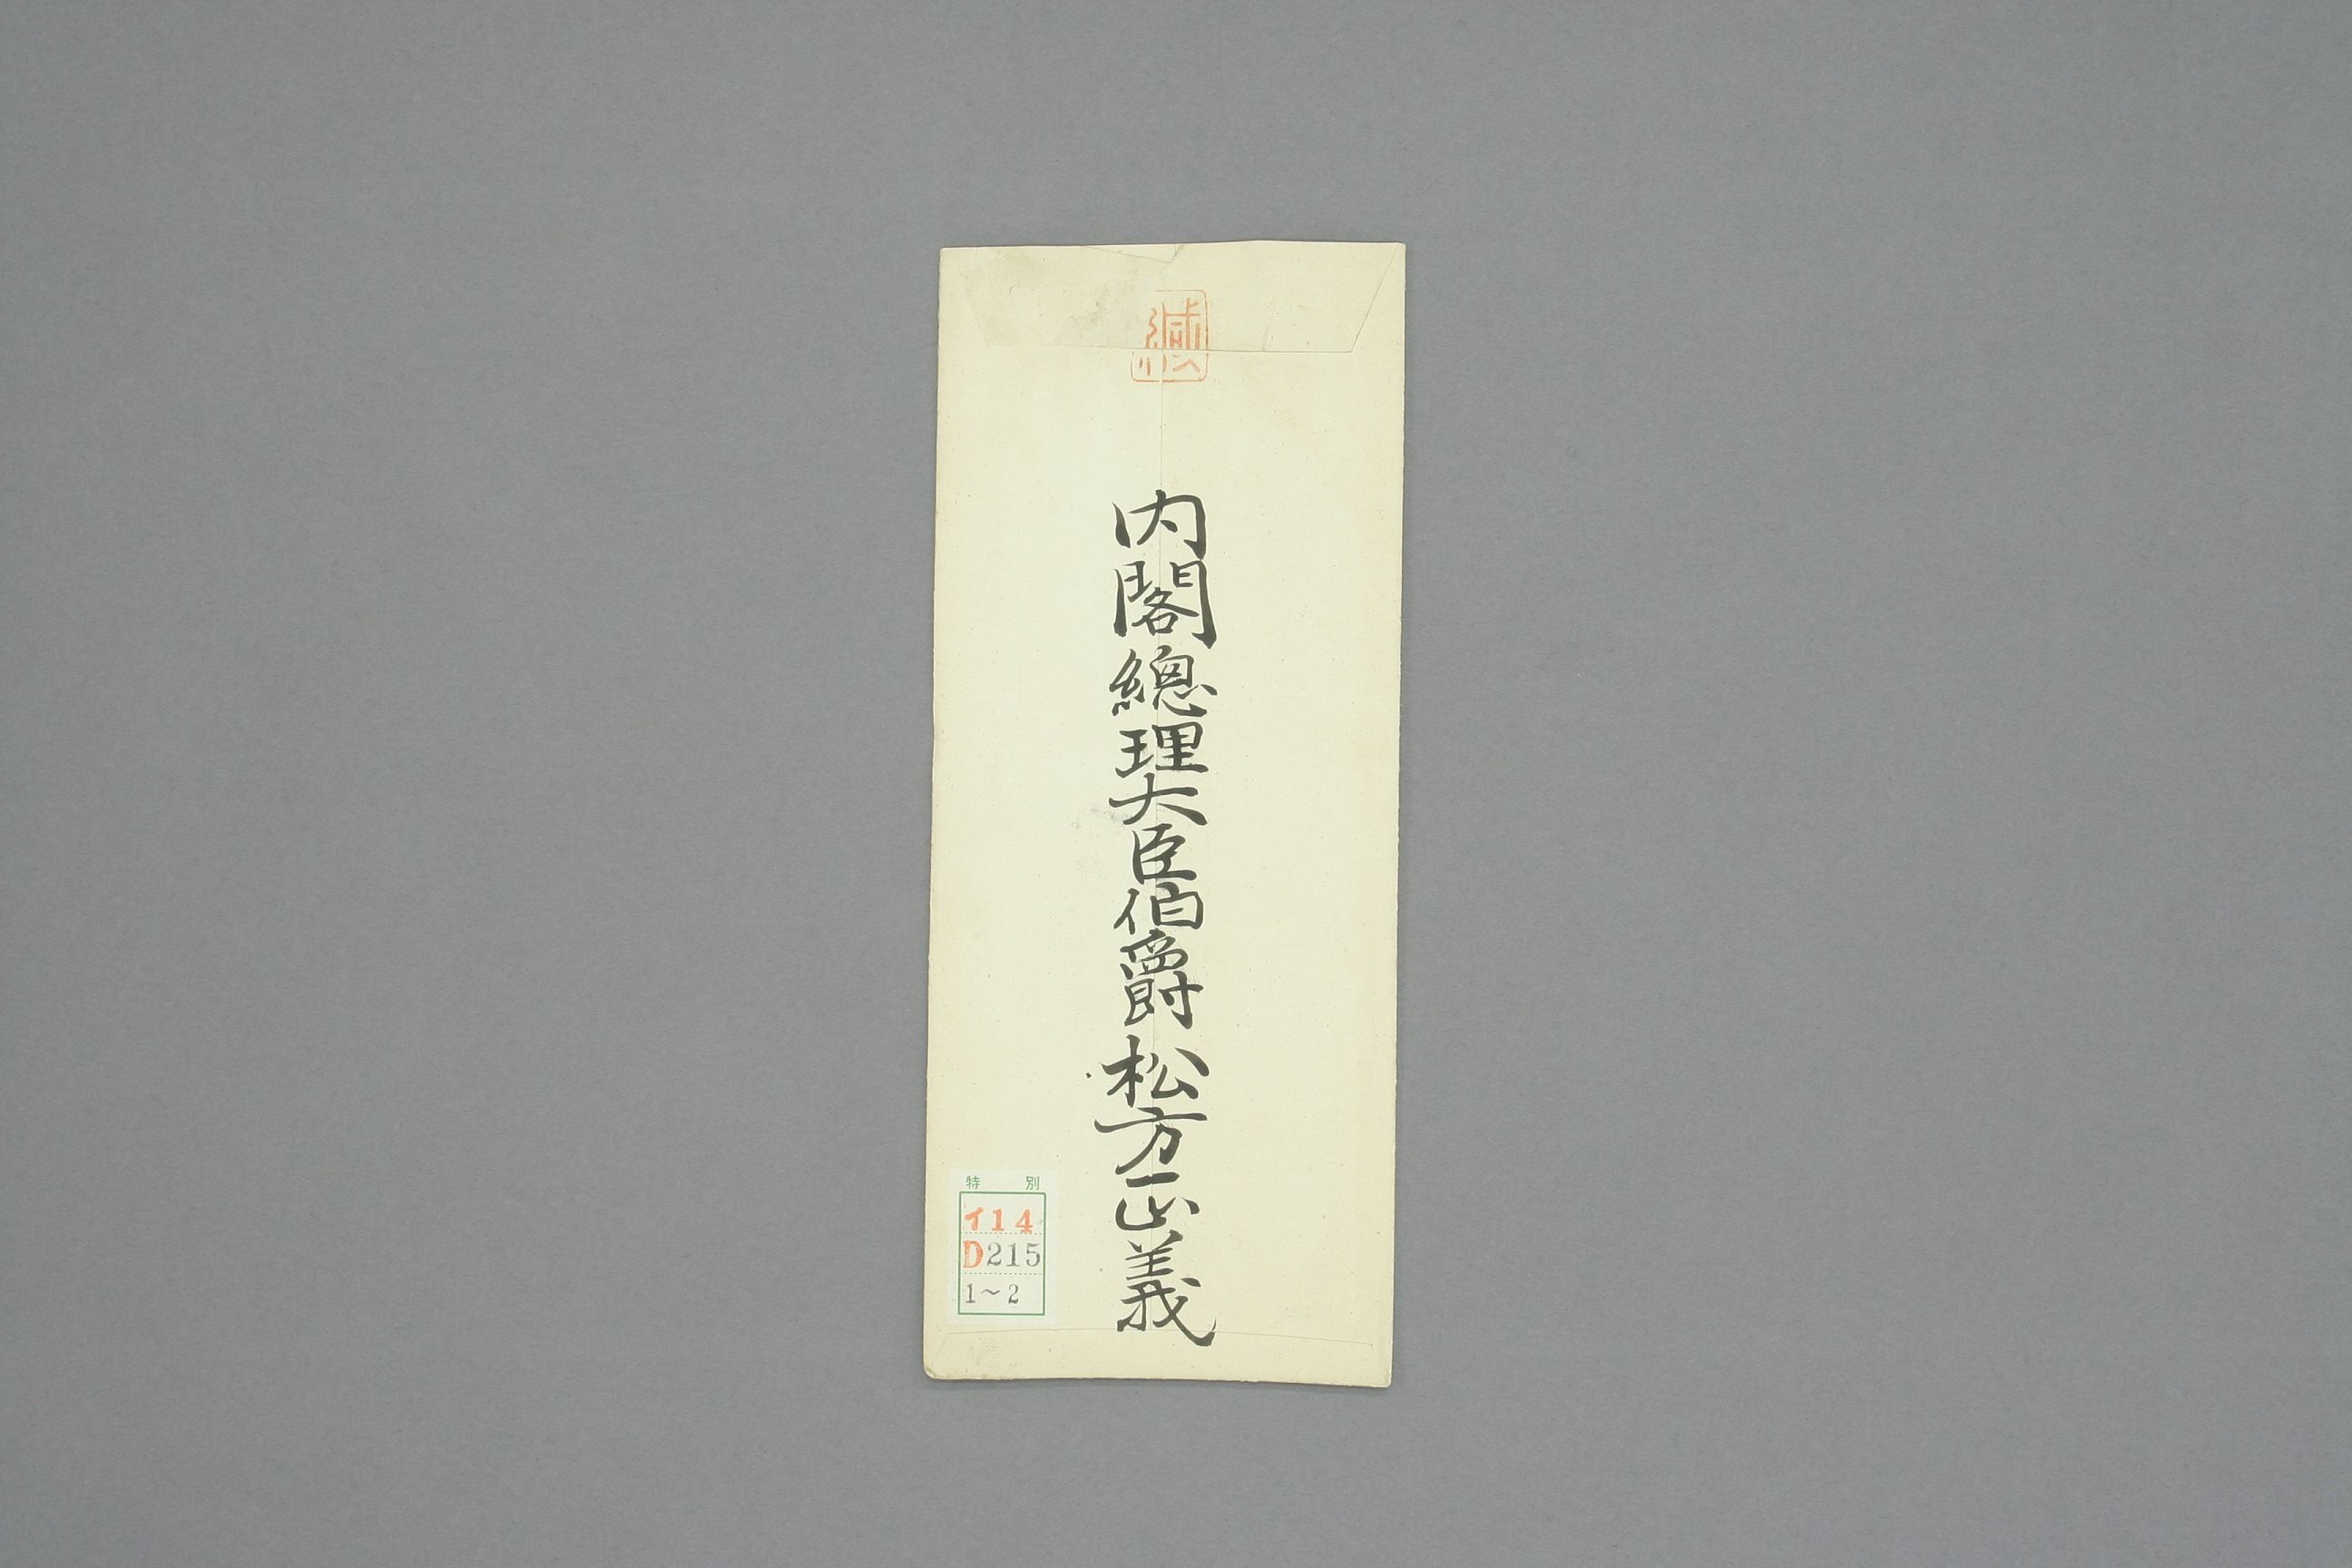 内閣總理大臣伯爵松方正義
特別
イ14
D215
1～2